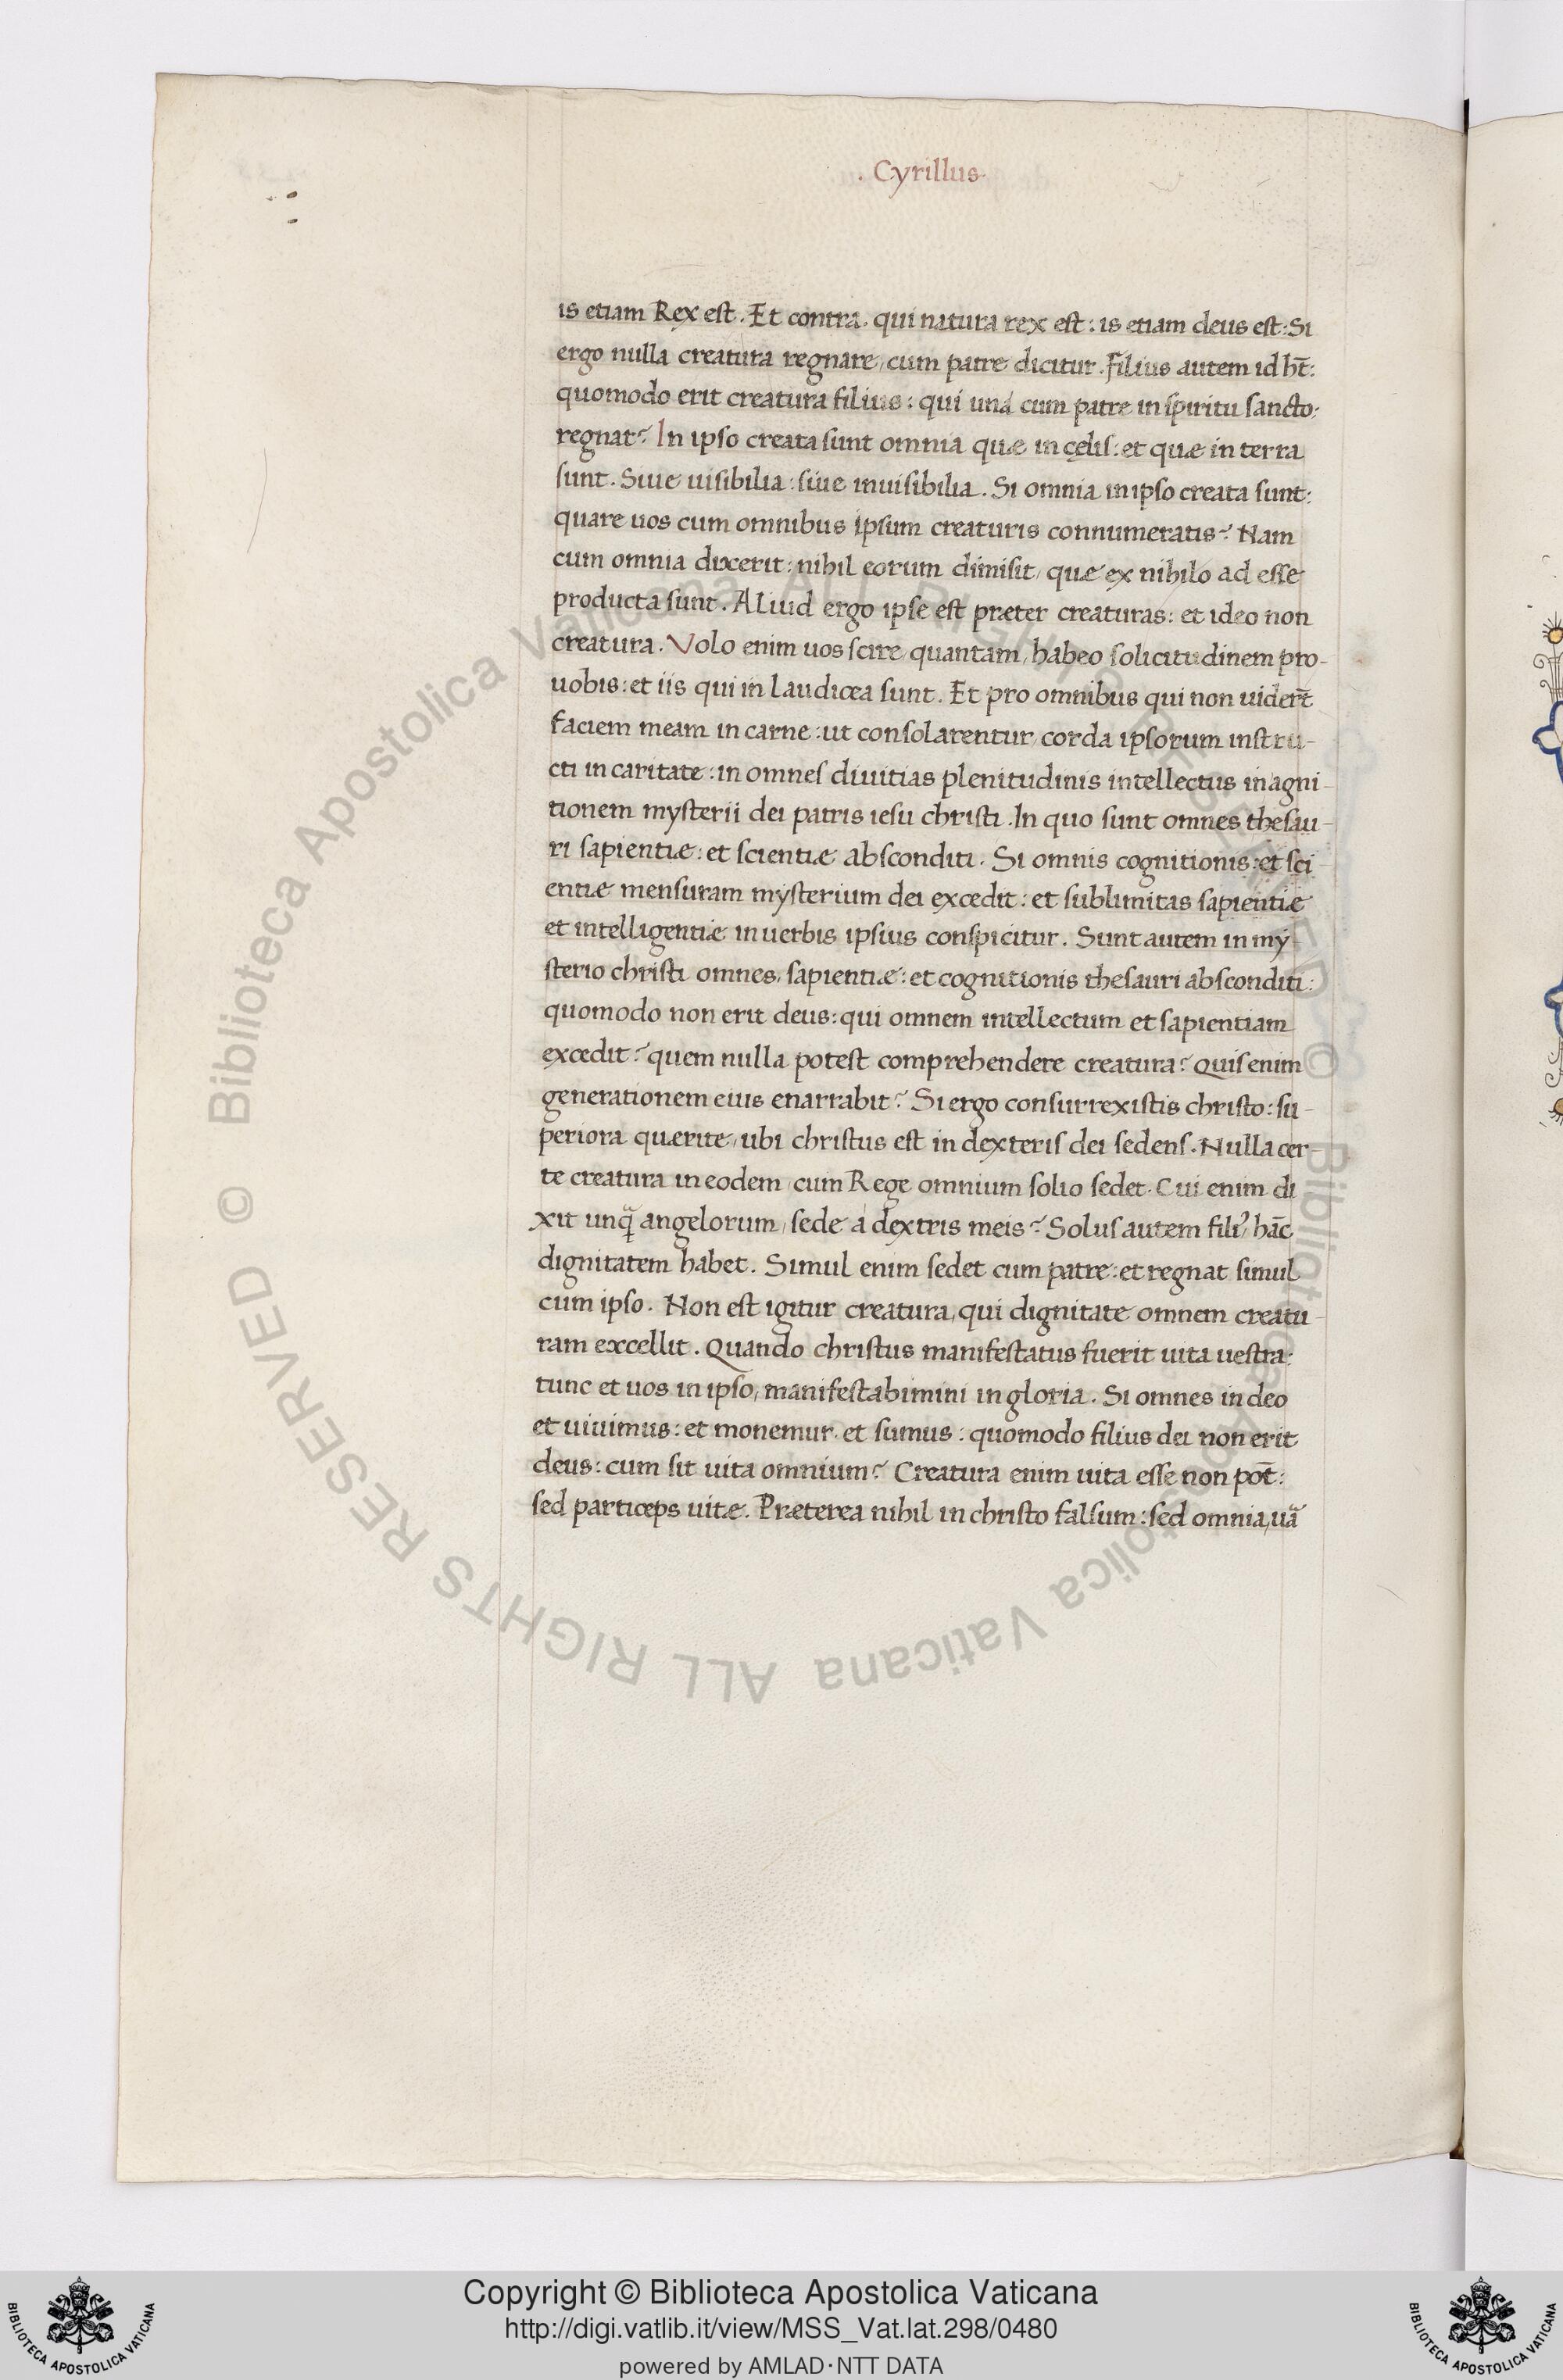 . Cyrillus.
is etiam Rex est. Et contra. qui natura rex est: is etiam deus est: Si
ergo nulla creatura regnare, cum patre dicitur. filius autem id ht̄:
quomodo erit creatura filius: qui una cum patre in spiritu sancto,
regnat? In ipso creata sunt omnia quæ in cęlis: et quæ in terra
sunt. Siue uisibilia: siue inuisibilia. Si omnia in ipso creata sunt:
quare uos cum omnibus ipsum creaturis connumeratis? Nam
cum omnia dixerit: nihil eorum dimisit, quæ ex nihilo ad esse
producta sunt. Aliud ergo ipse est præter creaturas: et ideo non
creatura. Volo enim uos scire, quantam, habeo solicitudinem pro-
uobis: et iis qui in laudicea sunt. Et pro omnibus qui non uidert̄
faciem meam in carne: ut consolarentur, corda ipsorum instru-
cti in caritate: in omnes diuitias plenitudinis intellectus in agni-
tionem mysterii dei patris iesu christi. In quo sunt omnes thesau-
ri sapientiæ: et scientiæ absconditi. Si omnis cognitionis: et sci
entiæ mensuram mysterium dei excedit: et sublimitas sapientiæ
et intelligentiæ in uerbis ipsius conspicitur. Sunt autem in my-
sterio christi omnes, sapientiæ: et cognitionis thesauri absconditi:
quomodo non erit deus: qui omnem intellectum et sapientiam
excedit? quem nulla potest comprehendere creatura? Quis enim
generationem eius enarrabit? Si ergo consurrexistis christo: su-
periora quærite, ubi christus est in dexteris dei sedens. Nulla cer-
te creatura in eodem, cum Rege omnium solio sedet. Cui enim di
xit unq̄ angelorum, sede a dextris meis? Solus autem fili⁹, hāc
dignitatem habet. Simul enim sedet cum patre: et regnat simul
cum ipso. Non est igitur creatura, qui dignitate omnem creatu-
ram excellit. Quando christus manifestatus fuerit uita uestra:
tunc et uos in ipso, manifestabimini in gloria. Si omnes in deo
et uiuimus: et monemur et sumus: quomodo filius dei non erit
deus: cum sit uita omnium? Creatura enim uita esse non pōt:
sed particeps uitæ. Præterea nihil in christo falsum: sed omnia, uā
© Biblioteca Apostolica Vaticana ALL RIGHTS RESERVED
© Biblioteca Apostolica Vaticana ALL RIGHTS RESERVED
Copyright © Biblioteca Apostolica Vaticana
http://digi.vatlib.it/view/MSS_Vat.lat.298/0480
powered by AMLAD·NTT DATA
BIBLIOTECA APOSTOLICA VATICANA
BIBLIOTECA APOSTOLICA VATICANA